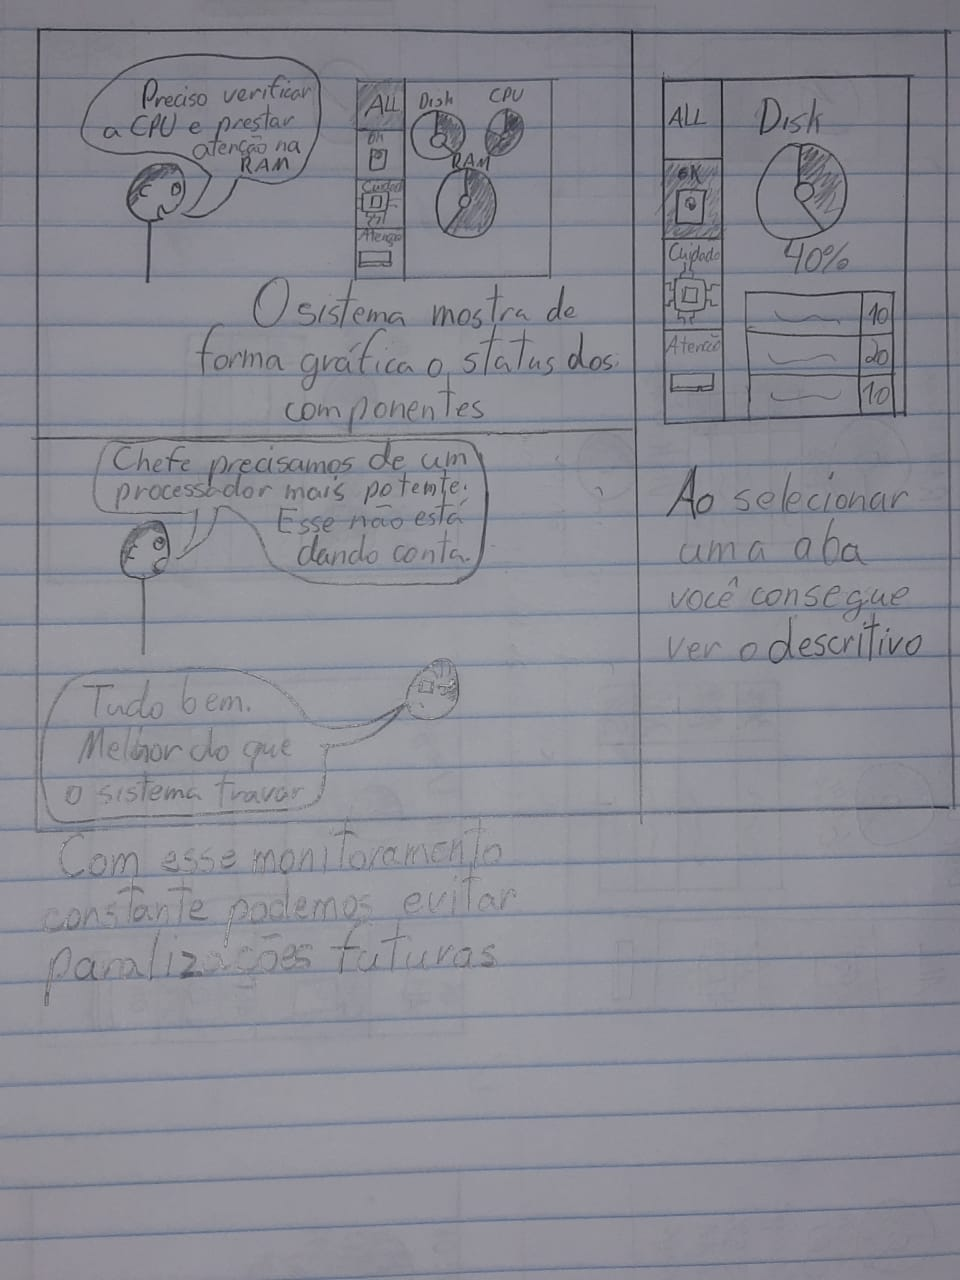 Preciso verificar
a CPU e prestar
atenção na
RAM
ALL
Ok
Cuidado
Atenção
Disk
CPU
RAM
O sistema mostra de
forma gráfica o status dos
componentes
ALL
OK
Cuidado
Atenção
Disk
40%
10
20
10
Ao selecionar
uma aba
você consegue
ver o descritivo
Chefe precisamos de um
processador mais potente.
Esse não está
dando conta.
Tudo bem.
Melhor do que
o sistema travar
Com esse monitoramento
constante podemos evitar
paralizações futuras